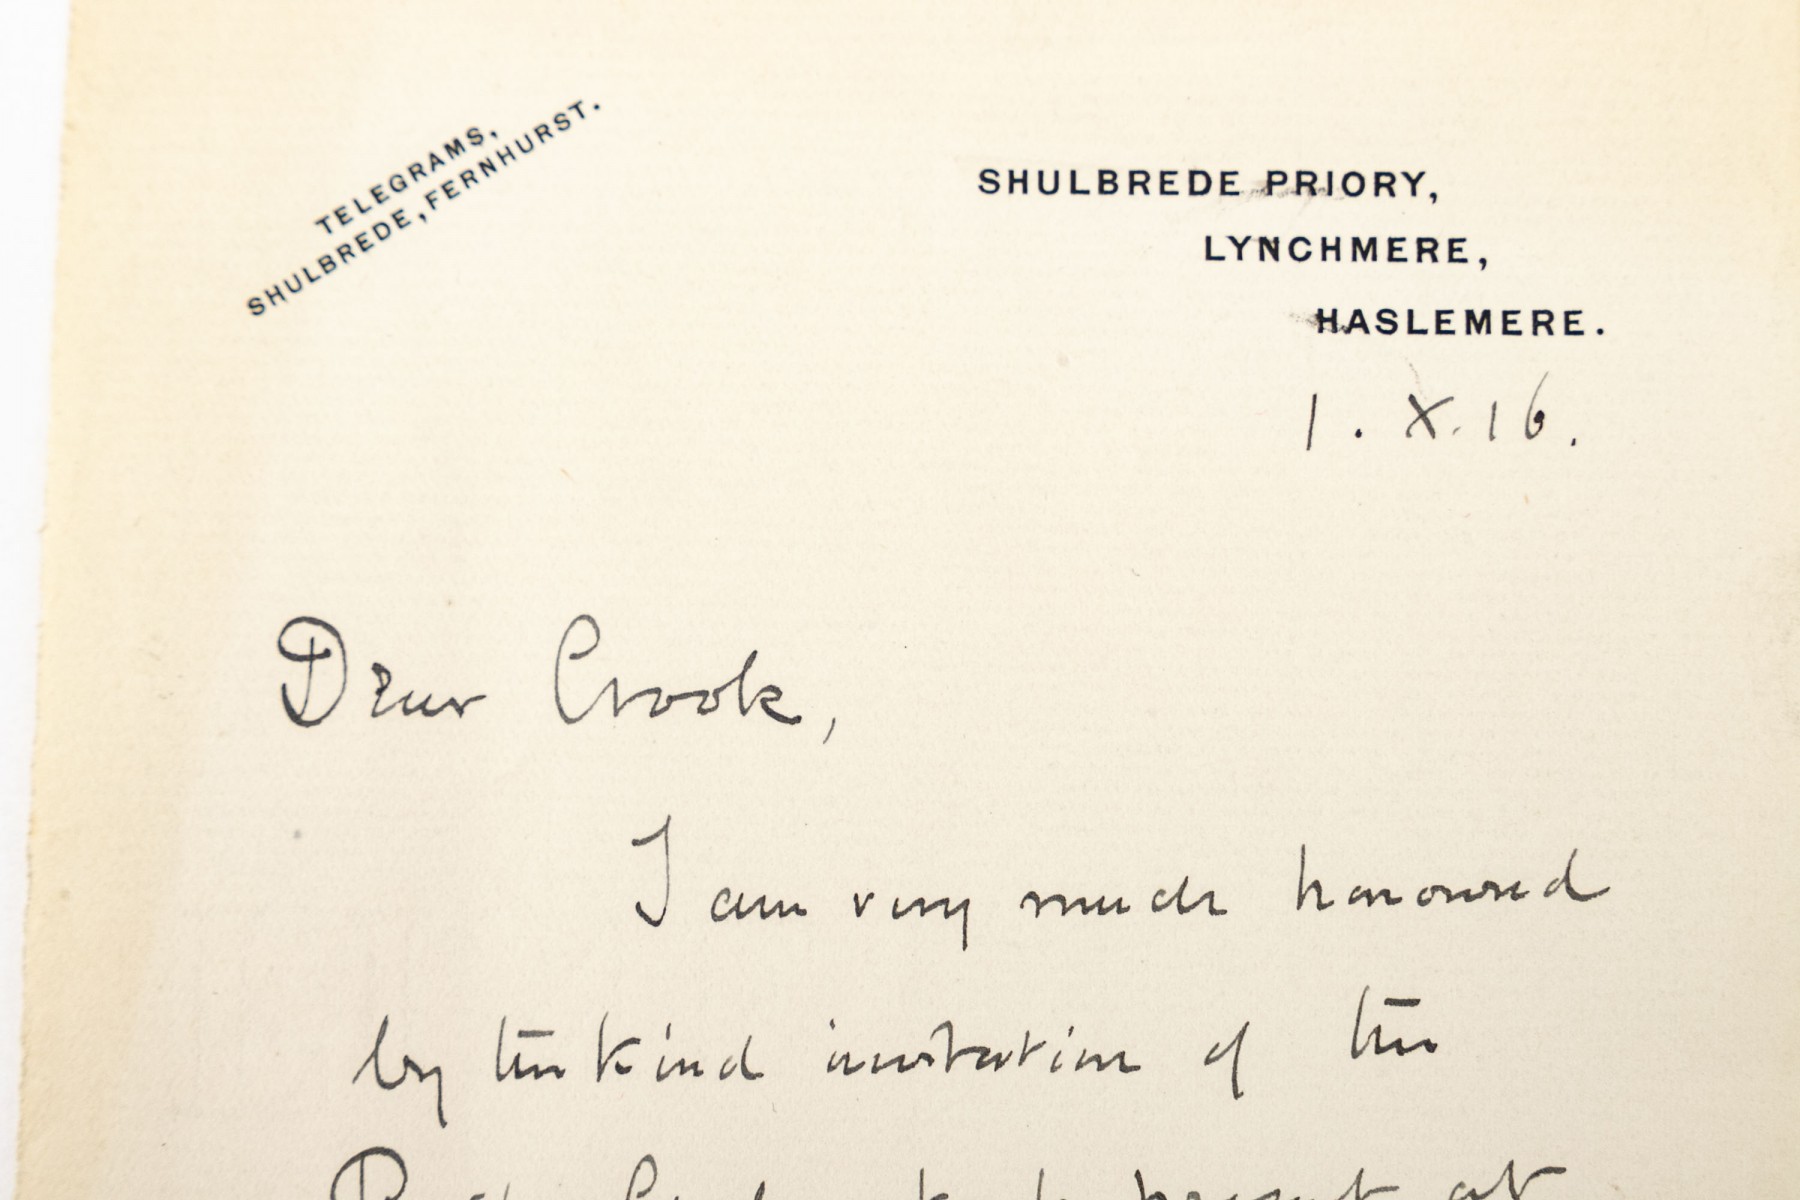 TELEGRAMS,
SHULBREDE, FERNHURST.
SHULBREDE PRIORY,
LYNCHMERE,
HASLEMERE.
1. X. 16.
Dear Crook,
I am very much honoured
by the kind invitation of the
to be present at